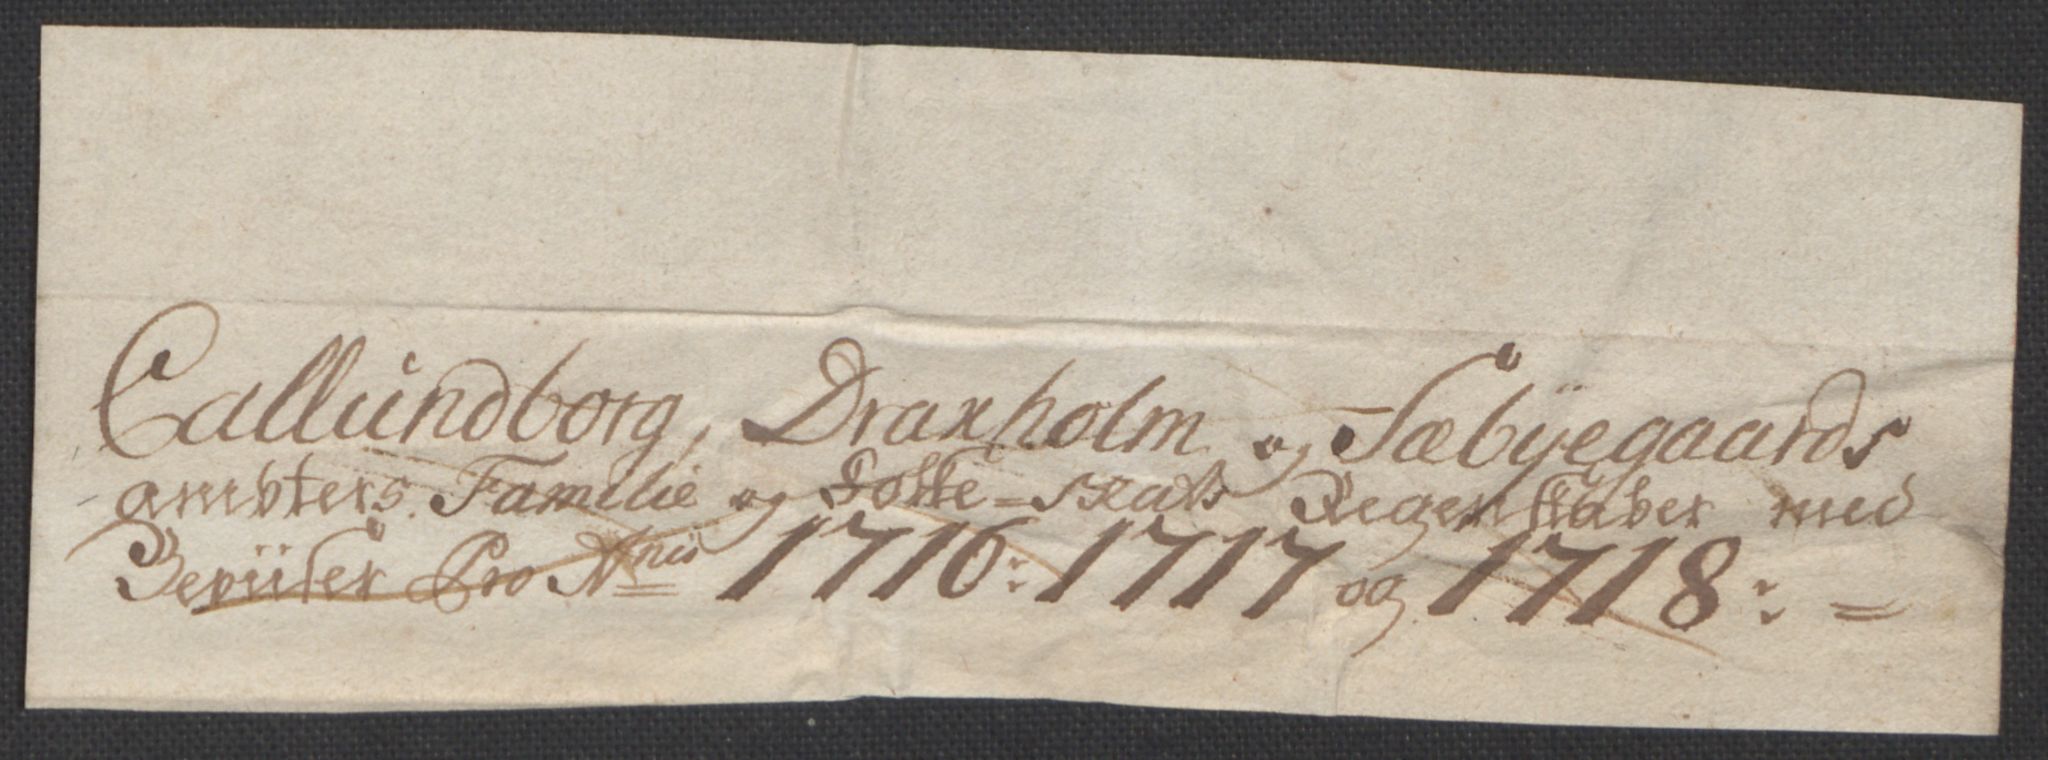 Callundborg, Draxholm og Sæbÿegaards
ambters. Familie og Folke=Skatts Regenskaber med
Beviiser Pro Annis 1716: 1717 og 1718: =